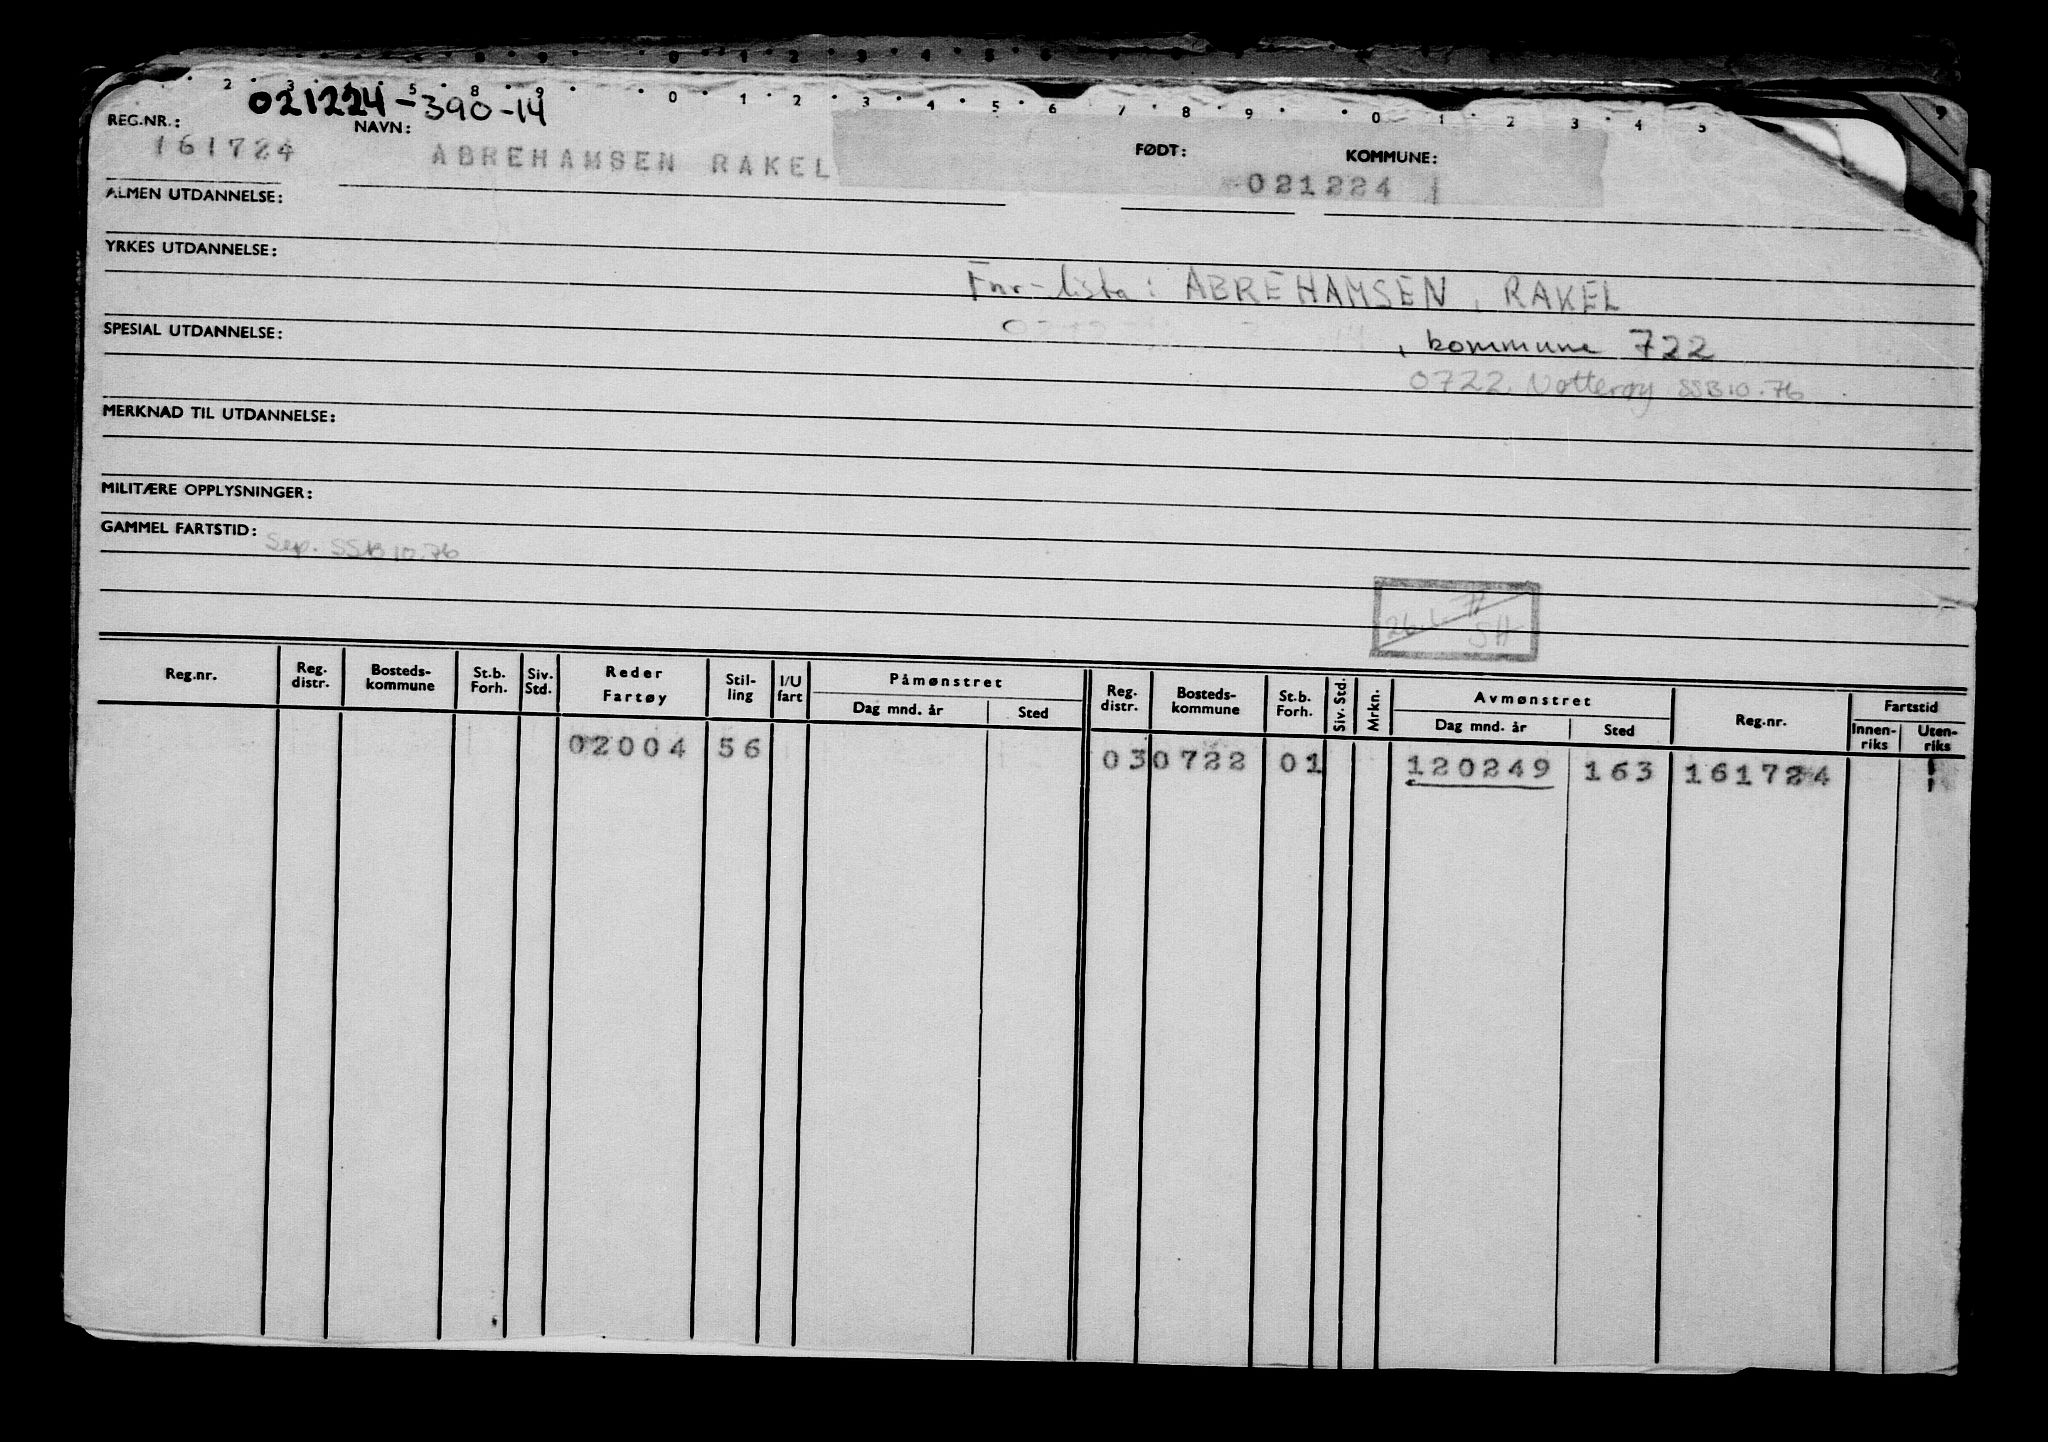 021224-390-14
REG.NR.: NAVN: FØDT: KOMMUNE:
161724 ABREHAMSEN RAKEL 021224
ALMEN UTDANNELSE:
YRKES UTDANNELSE:
Fnr-lista: ABREHAMSEN, RAKEL
SPESIAL UTDANNELSE:
, kommune 722
0722 Nøtterøy SSB 10.76
MERKNAD TIL UTDANNELSE:
MILITÆRE OPPLYSNINGER:
GAMMEL FARTSTID:
Sep. SSB 10.76
SH
Reg.nr. Reg. distr. Bosteds-kommune St.b. Forh. Siv. Std. Reder Fartøy Stil-ling I/U fart Påmønstret Dag mnd. år Sted Reg. distr. Bosteds-kommune St.b. Forh. Siv. Std. Mrkn. Avmønstret Dag mnd. år Sted Reg.nr. Fartstid Innen-riks Uten-riks
02004 56 03 0722 01 120249 163 161724